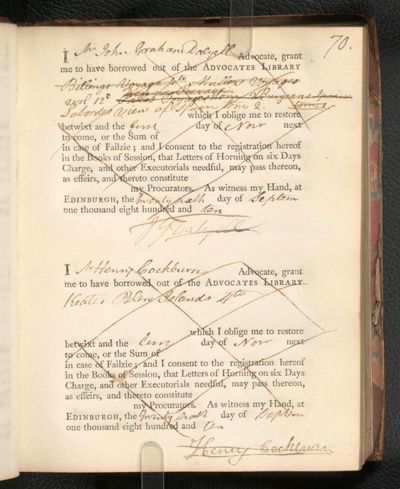 70.
I Mr John Graham Dalyell Advocate, grant
me to have borrowed out of the ADVOCATES LIBRARY
Billings Voyage 4to Voyages
12o
View of Spain Vol 2.
which I oblige me to restore
betwixt and the first day of Nov next
to come, or the Sum of
in case of Failzie; and I consent to the registration hereof
in the Books of Session, that Letters of Horning on six Days
Charge, and other Executorials needful, may pass thereon,
as effeirs, and thereto constitute
my Procurators. As witness my Hand, at
EDINBURGH, the twenty sixth day of Septem
one thousand eight hundred and ten
J G Dalyell
I Mr Henry Cockburn Advocate, grant
me to have borrowed out of the ADVOCATES LIBRARY
Keates Pelew Islands 4to
which I oblige me to restore
betwixt and the first day of Nov next
to come, or the Sum of
in case of Failzie; and I consent to the registration hereof
in the Books of Session, that Letters of Horning on six Days
Charge, and other Executorials needful, may pass thereon,
as effeirs, and thereto constitute
my Procurators. As witness my Hand, at
EDINBURGH, the twenty sixth day of Septem
one thousand eight hundred and ten
Henry Cockburn